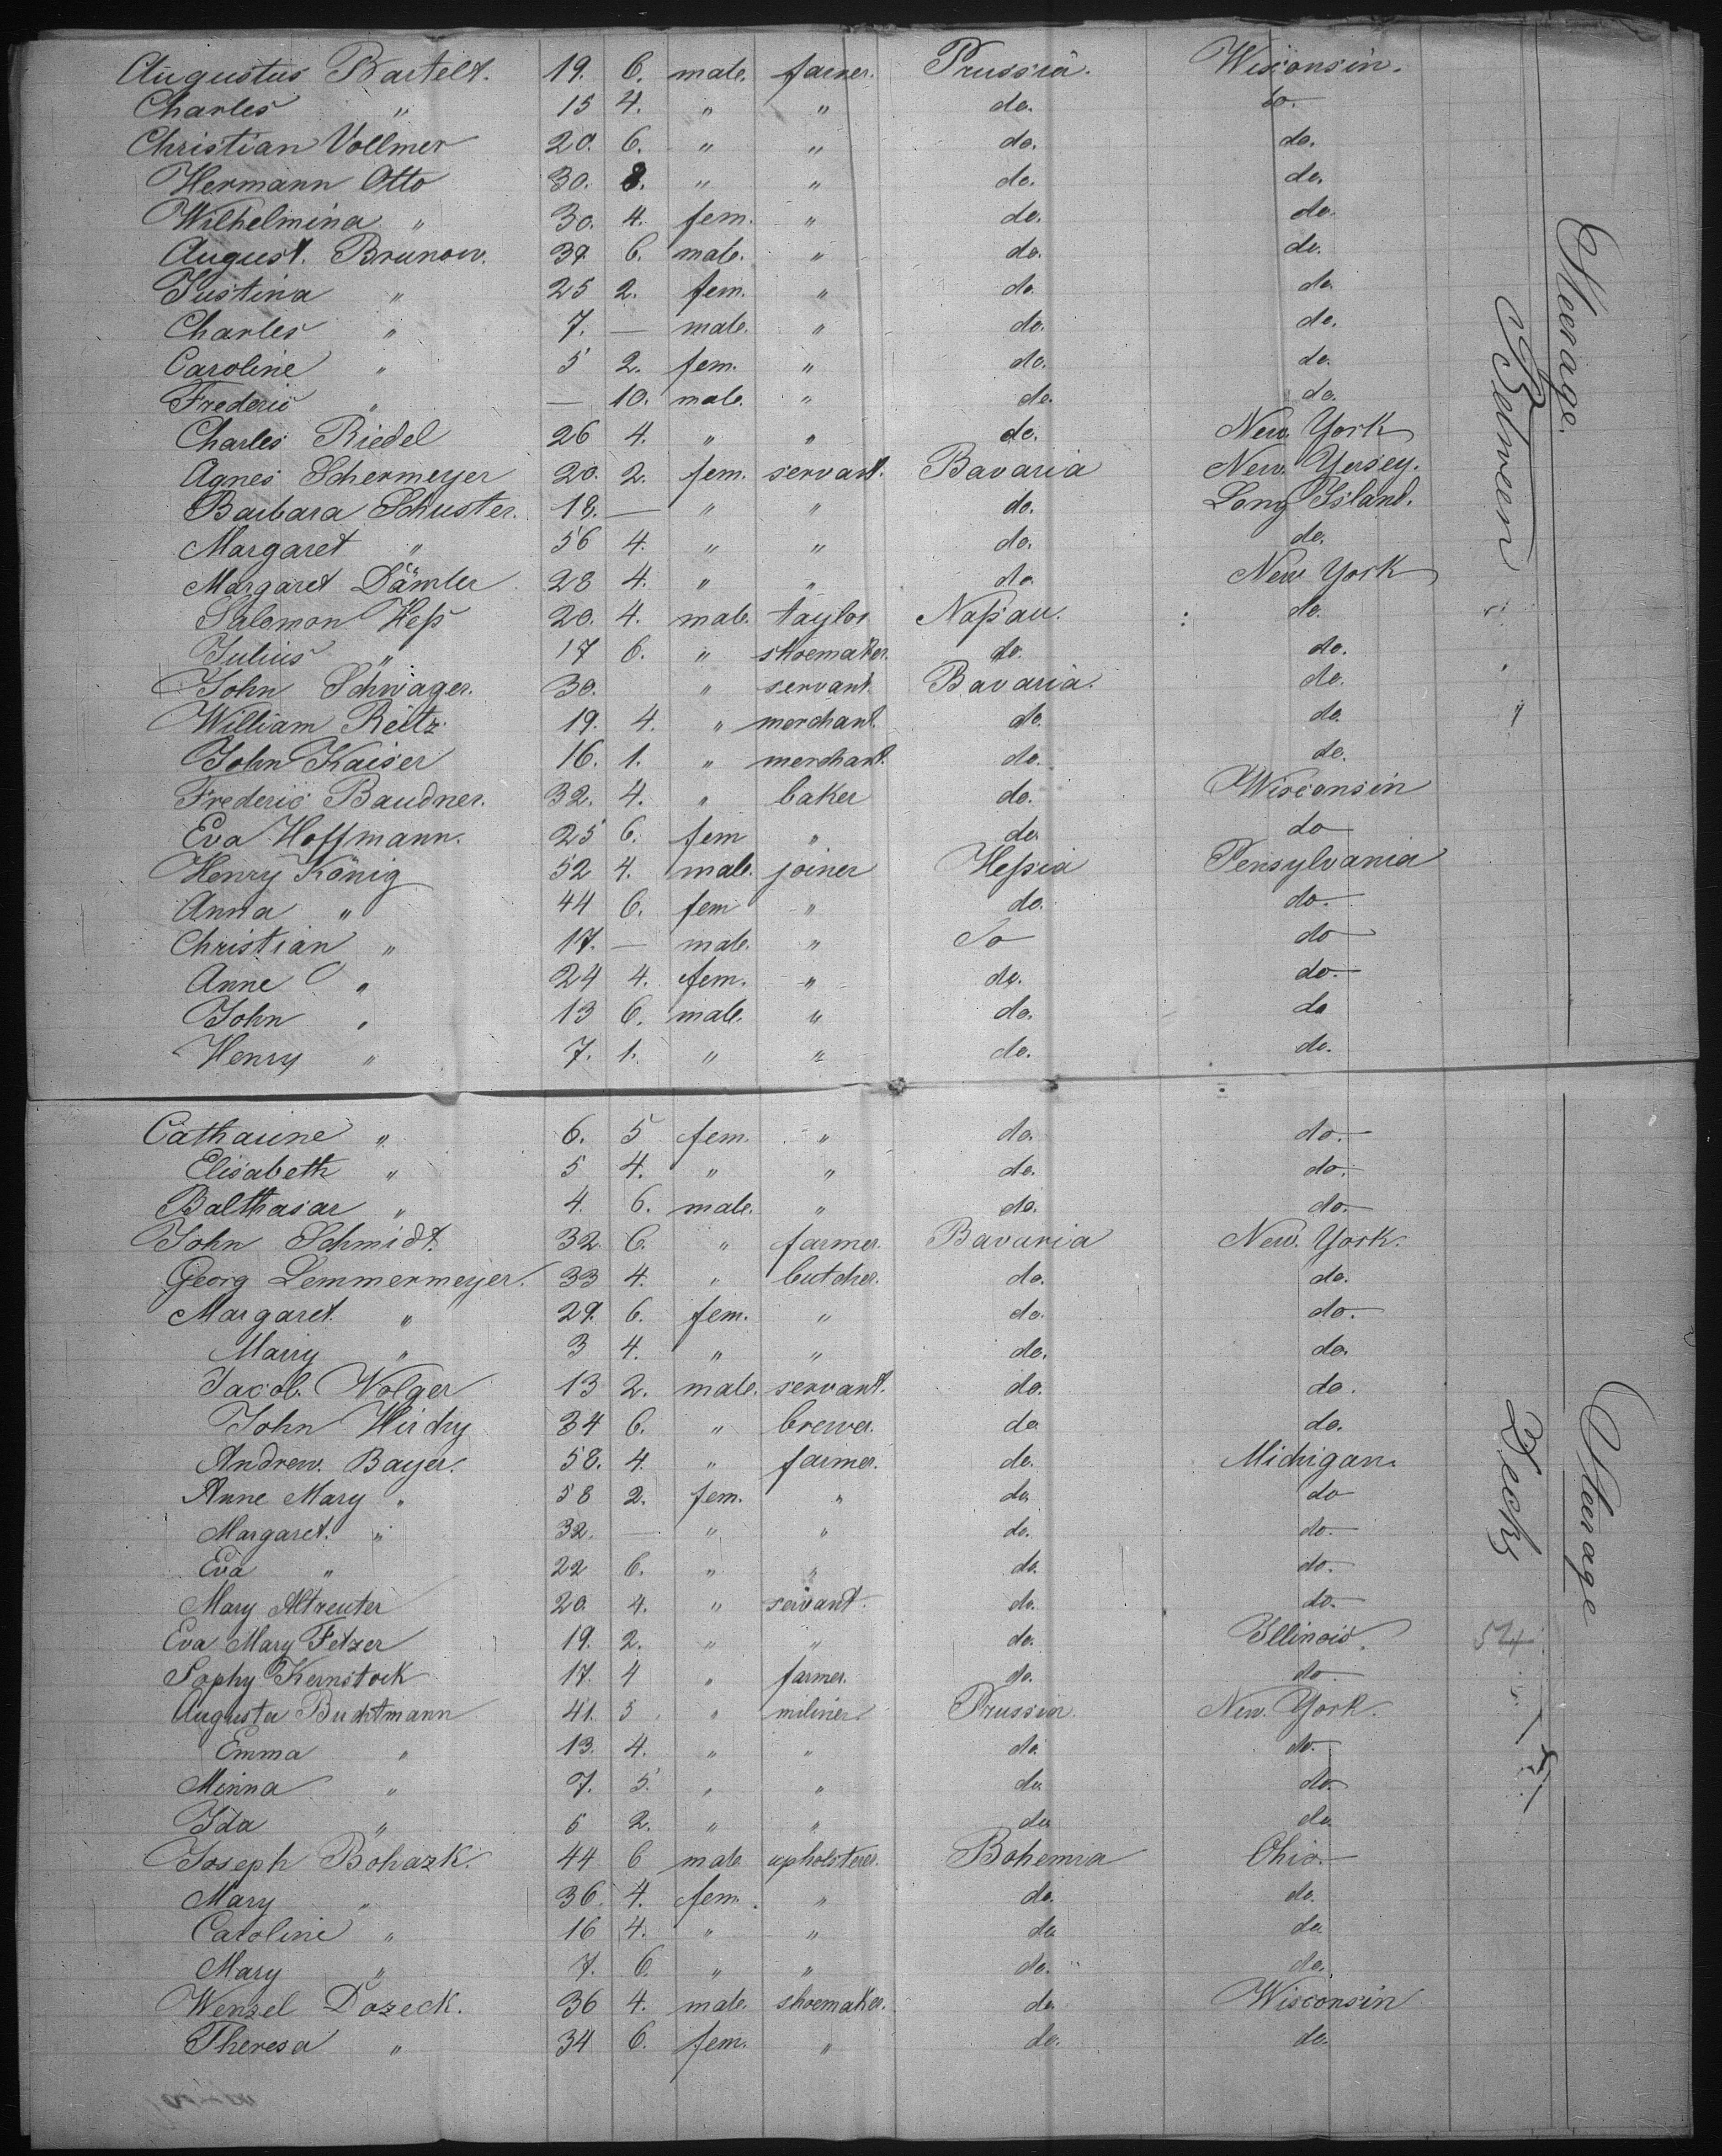 Augustus Bartelt. 19. 6. male. farmer. Prussia. Wisconsin.
Charles " 15 4. " " do. do.
Christian Vollmer 20. 6. " " do. do.
Hermann Otto 30. 8. " " do. do.
Wilhelmina " 30. 4. fem. " do. do.
August. Brunow. 39. 6. male. " do. do.
Justina " 25 2. fem. " do. do.
Charles " 7. — male. " do. do.
Caroline " 5 2. fem. " do. do.
Frederic " — 10. male. " do. do.
Charles Riedel 26 4. " " do. New York
Agnes Schermeyer 20. 2. fem. servant. Bavaria New Yersey.
Barbara Schuster. 18. — " " do. Long Island.
Margaret " 56 4. " " do. do.
Margaret Dämler 28 4. " " do. New York
Salomon Heß 20. 4. male. taylor Naßau. do.
Julius " 17 6. " shoemaker. do. do.
John Schwager. 30. " servant. Bavaria. do.
William Reitz. 19. 4. " merchant. do. do.
John Kaiser 16. 1. " merchant. do. do.
Frederic Baudner. 32. 4. " baker do. Wisconsin
Eva Hoffmann. 25 6. fem " do. do
Henry König 52 4. male. joiner Heßia Pensylvania
Anna " 44 6. fem " do. do.
Christian " 17. — male. " do do
Anne " 24 4. fem. " do. do.
John " 13 6. male. " do. do
Henry " 7. 1. " " do. do.
Steerage.
Between
Catharine " 6. 5 fem. " do. do.
Elisabeth " 5 4. " " do. do.
Balthasar " 4. 6. male. " do. do.
John Schmidt. 32. 6. " farmer. Bavaria New. York.
Georg Lemmermeyer. 33 4. " butcher. do. do.
Margaret. " 29. 6. fem. " do. do.
Marry " 3 4. " " do. do.
Jacob. Nolger 13 2. male. servant. do. do.
John Hirdry 34 6. " brewer. do. do.
Andrew. Bayer. 58. 4. " farmer. do. Michigan.
Anne Mary " 58 2. fem. " do. do
Margaret. " 32. — " " do. do.
Eva " 22 6. " " do. do.
Mary Altreuter 20. 4. " servant. do. do.
Eva Mary Fetzer 19. 2. " " do. Illinois.
Sophy Kernstock 17. 4 " farmer. do. do
Augusta Buchtmann 41. 3 " miliner Prussia. New. York.
Emma " 13. 4. " " do. do.
Minna " 7. 5. " " do. do.
Ida " 5 2. " " do. do.
Joseph Bohazk. 44 6 male upholsterer. Bohemia Ohio.
Mary " 36. 4. fem. " do. do.
Caroline " 16 4. " " do. do
Mary " 7. 6. " " do. do.
Wenzel Dozeck. 36 4. male. shoemaker. do. Wisconsin
Theresa " 34 6. fem. " do. do.
Steerage
Deck
54